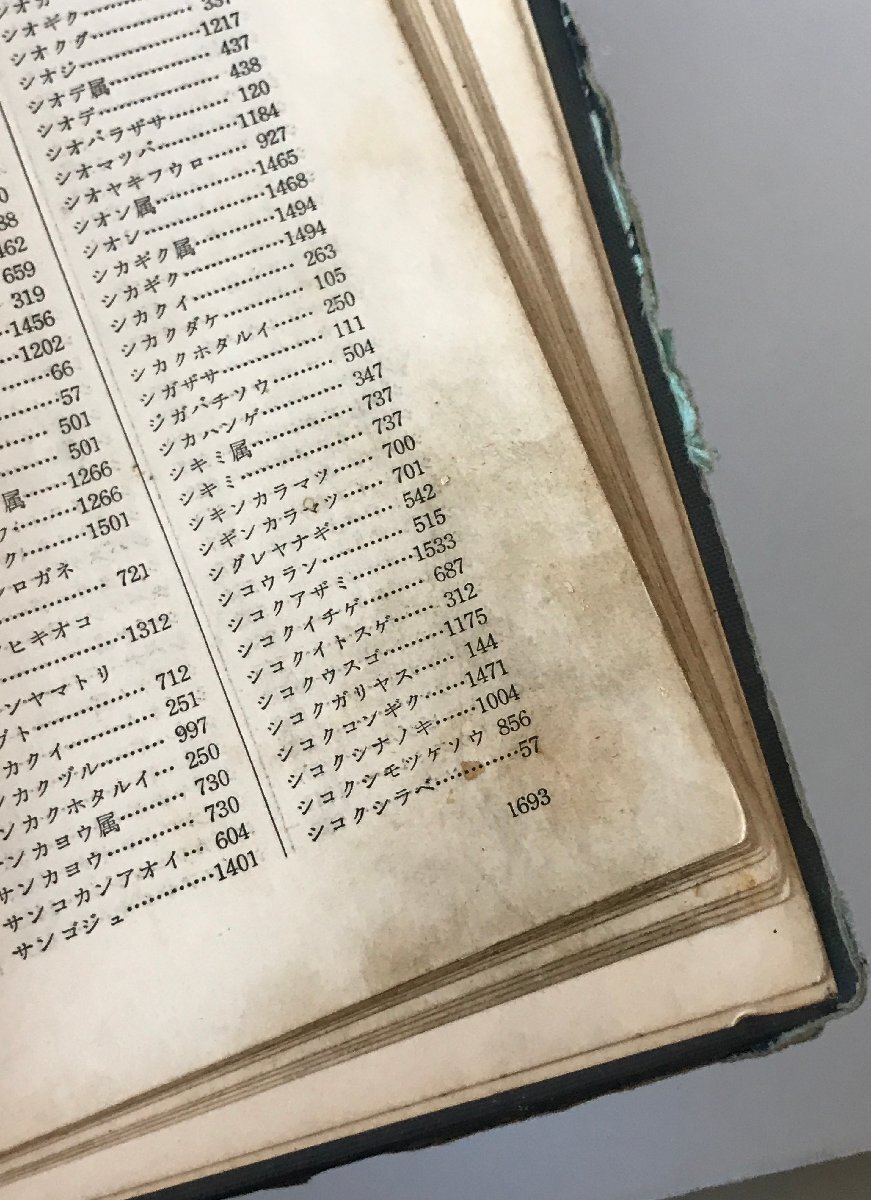 0
88
462
659
319
1456
1202
66
57
501
501
属……1266
1266
ク………1501
ロガネ
………… 721
ヒキオコ
…………1312
ンヤマトリ
ブト…………… 712
カクイ………… 251
カクヅル……… 997
ンカクホタルイ… 250
ンカヨウ属……… 730
サンカヨウ………… 730
サンコカンアオイ… 604
サンゴジュ…………1401
シオギク…………
シオクグ…………… 337
シオジ………………1217
シオデ属…………… 437
シオデ……………… 438
シオバラザサ……… 120
シオマツバ…………1184
シオヤキフウロ…… 927
シオン属……………1465
シオン………………1468
シカギク属…………1494
シカギク……………1494
シカクイ…………… 263
シカクダケ………… 105
シカクホタルイ…… 250
シガザサ…………… 111
ジガバチソウ……… 504
シカハンゲ………… 347
シキミ属…………… 737
シキミ……………… 737
シキンカラマツ…… 700
シギンカラマツ…… 701
シグレヤナギ……… 542
シコウラン………… 515
シコクアザミ………1533
シコクイチゲ……… 687
シコクイトスゲ…… 312
シコクウスゴ………1175
シコクガリヤス…… 144
シコクコンギク……1471
シコクシナノキ……1004
シコクシモツケソウ 856
シコクシラベ…………57
1693